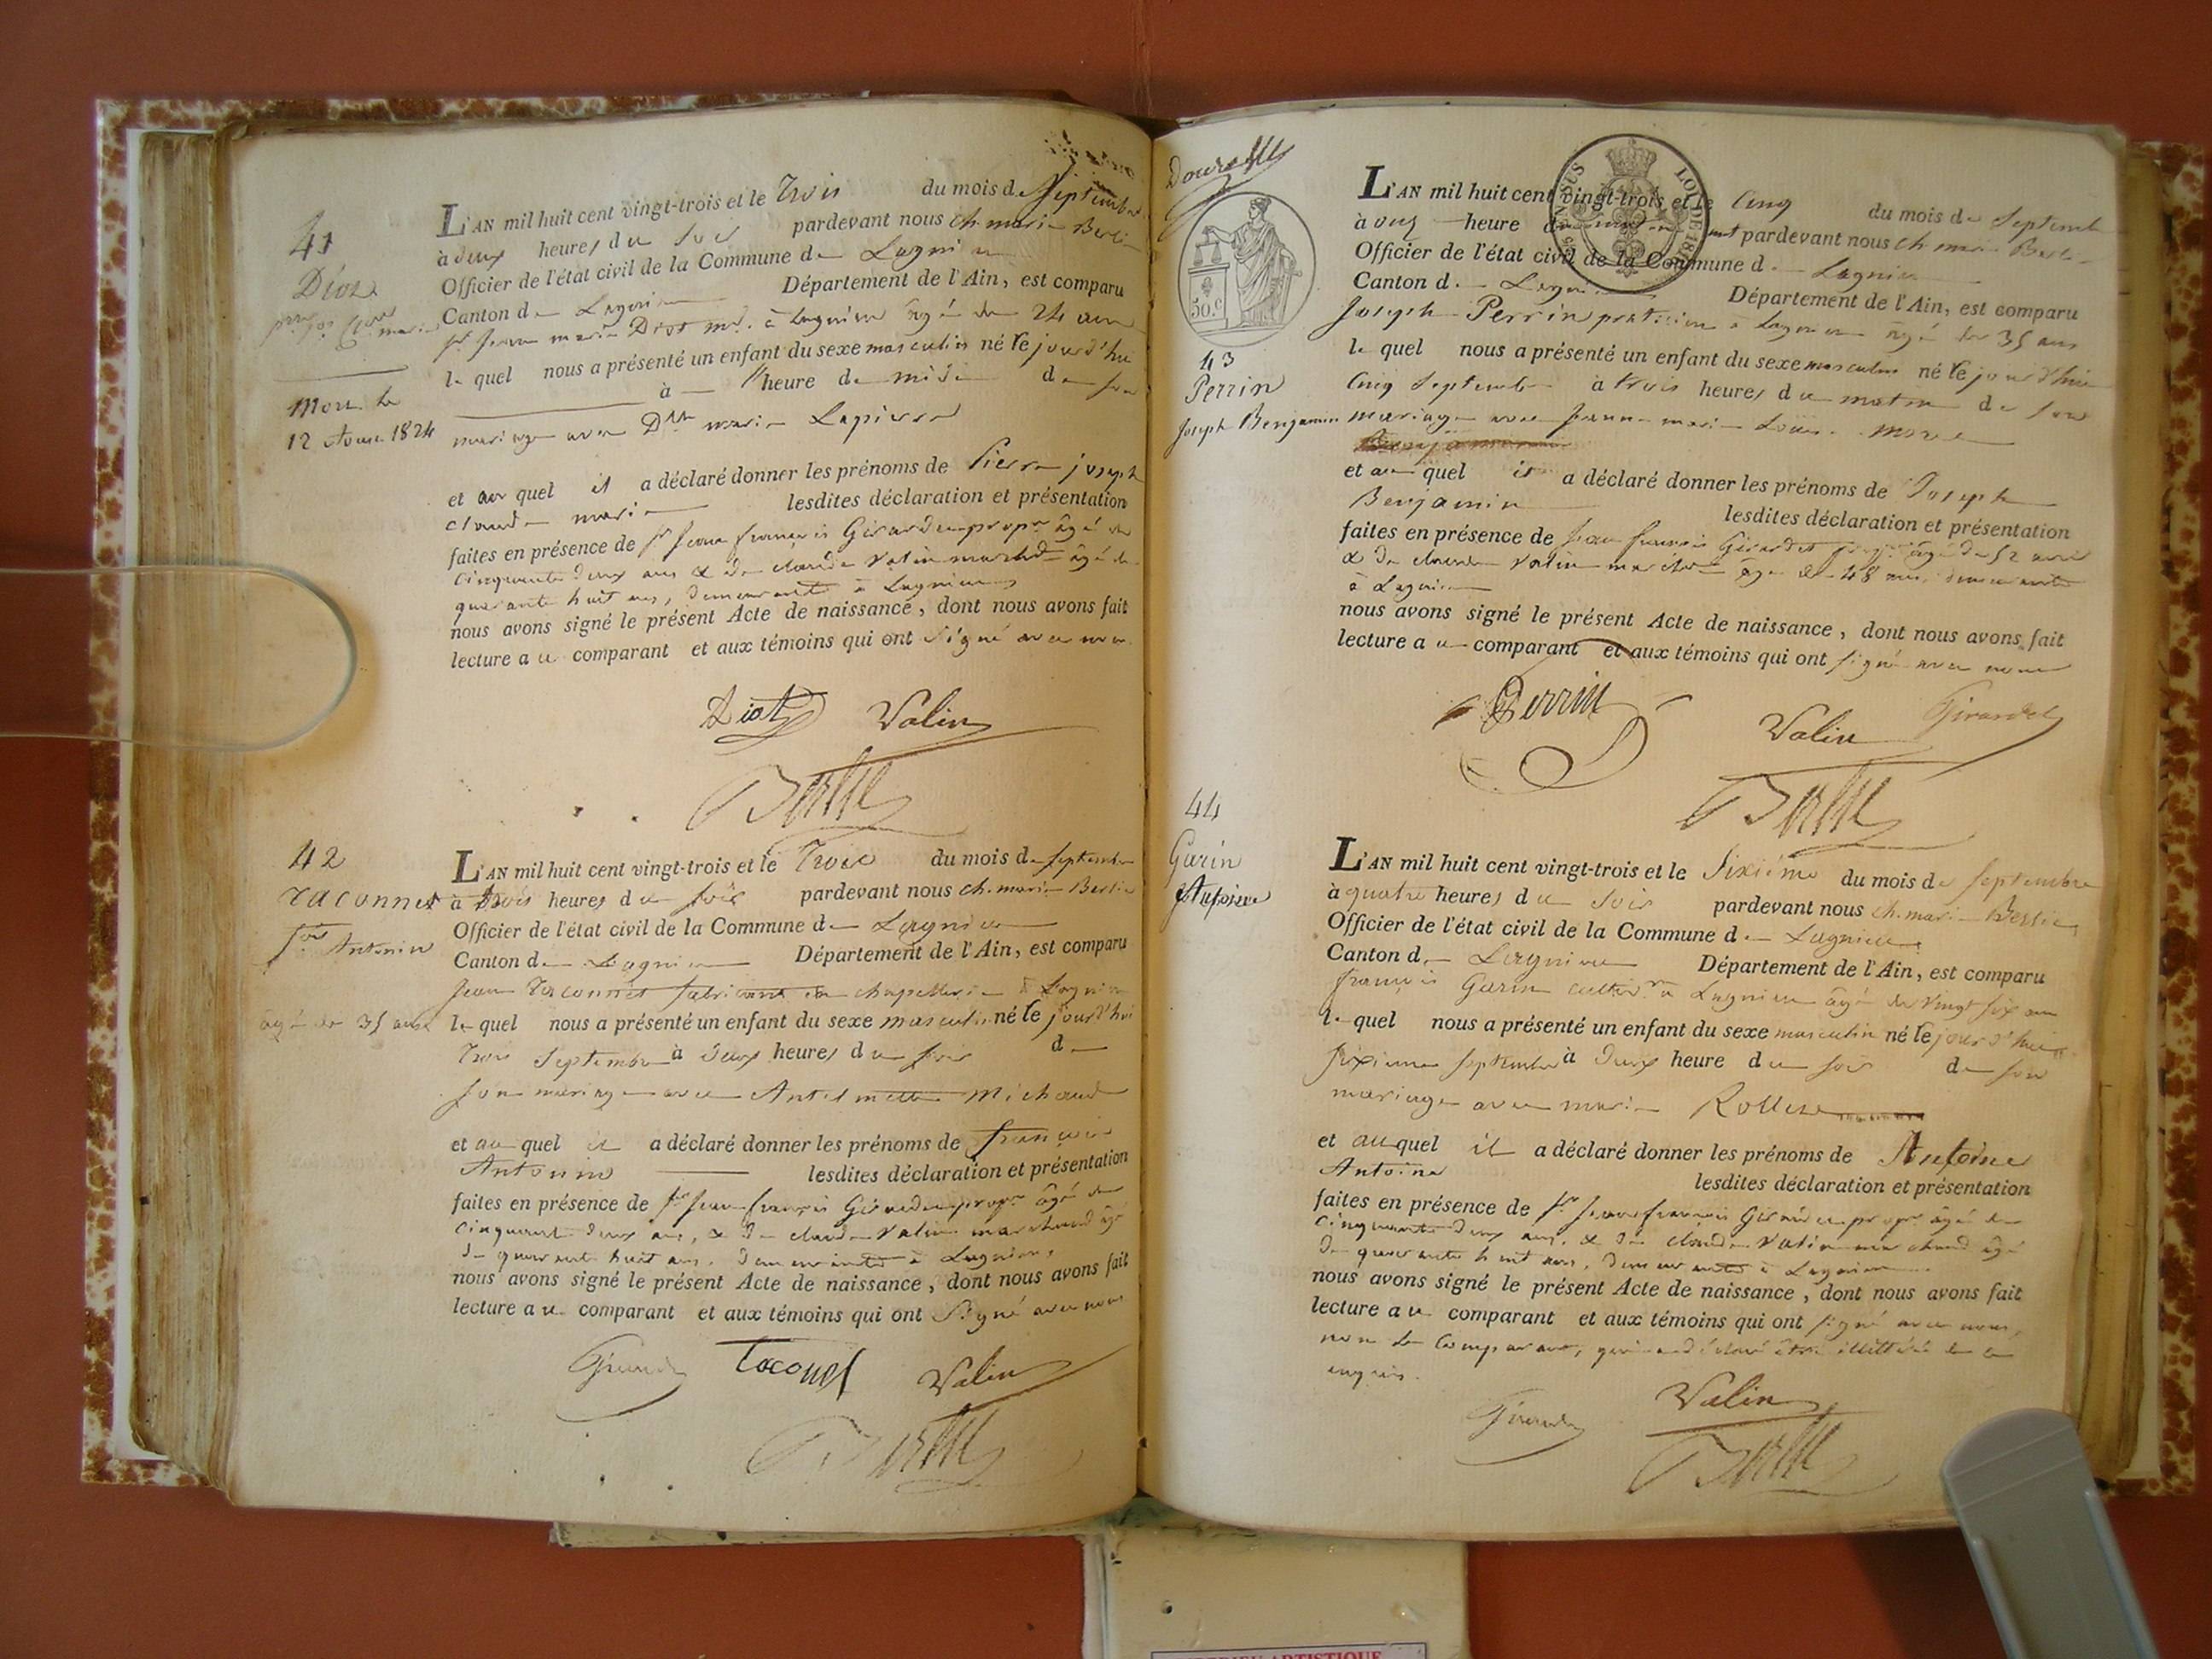 41
Diot
pre jos. Cde marie
Mort le
12 Aout 1824
L'AN mil huit cent vingt-trois et le Trois du mois de Septembre
à deux heures du soir pardevant nous ch. marie Berlie
Officier de l'état civil de la Commune de Lagnieu
Canton de Lagnieu Département de l'Ain, est comparu
sr jean marie Diot md. à Lagnieu âgé de 24 ans
le quel nous a présenté un enfant du sexe masculin né le jourd'hui
à heure de midi de son
mariage avec Dlle marie Lapierre
et au quel il a déclaré donner les prénoms de Pierre joseph
claude marie lesdites déclaration et présentation
faites en présence de sr jean françois Girardet propre âgé de
cinquante deux ans & de claude Valin marchd âgé de
quarante huit ans, demeurants à Lagnieu
nous avons signé le présent Acte de naissance, dont nous avons fait
lecture au comparant et aux témoins qui ont signé avec nous.
Diot Valin
Berlie
42
Taconnet
fois Antonin
L'AN mil huit cent vingt-trois et le Trois du mois de septembre
à Trois heures du soir pardevant nous ch. marie Berlie
Officier de l'état civil de la Commune de Lagnieu
Canton de Lagnieu Département de l'Ain, est comparu
jean Taconnet fabricant de chapellerie à Lagnieu
âgé de 35 ans le quel nous a présenté un enfant du sexe masculin né le jourd'hui
Trois septembre à deux heures du soir de
son mariage avec Antelmette Michaud
et au quel il a déclaré donner les prénoms de françois
Antonin lesdites déclaration et présentation
faites en présence de sr jean françois Girardet propre âgé de
cinquante deux ans, & de claude Valin marchand âgé
de quarante huit ans. demeurants à Lagnieu,
nous avons signé le présent Acte de naissance, dont nous avons fait
lecture au comparant et aux témoins qui ont signé avec nous
Girardet Taconet Valin
Berlie
50 c
43
Perrin
joseph Benjamin
L'AN mil huit cent vingt-trois et le cinq du mois de septembre
à onze heure du pardevant nous ch. marie Berlie
Officier de l'état civil de la Commune de Lagnieu
Canton de Lagnieu Département de l'Ain, est comparu
joseph Perrin praticien à Lagnieu âgé de 35 ans
le quel nous a présenté un enfant du sexe masculin né le jourd'hui
cinq septembre à trois heures du matin de son
mariage avec jeanne marie Louise morel
et au quel il a déclaré donner les prénoms de Joseph
Benjamin lesdites déclaration et présentation
faites en présence de jean françois Girardet propre âgé de 52 ans
& de claude Valin marchd âgé de 48 ans, demeurants
à Lagnieu
nous avons signé le présent Acte de naissance, dont nous avons fait
lecture au comparant et aux témoins qui ont signé avec nous
Perrin Valin Girardet
Berlie
44
Garin
Antoine
L'AN mil huit cent vingt-trois et le Sixième du mois de septembre
à quatre heures du soir pardevant nous ch. marie Berlie
Officier de l'état civil de la Commune de Lagnieu
Canton de Lagnieu Département de l'Ain, est comparu
françois Garin cultivr à Lagnieu âgé de vingt six ans
le quel nous a présenté un enfant du sexe masculin né le jourd'hui
sixieme septembre à deux heure du soir de son
mariage avec marie Rollese
et au quel il a déclaré donner les prénoms de Antoine
Antoine lesdites déclaration et présentation
faites en présence de sr jean françois Girardet propre âgé de
cinquante deux ans, & de claude Valin marchand âgé
de quarante huit ans, demeurants à Lagnieu
nous avons signé le présent Acte de naissance, dont nous avons fait
lecture au comparant et aux témoins qui ont signé avec nous,
non le comparant, qui a déclaré être illitéré de ce
enquis.
Girardet Valin
Berlie